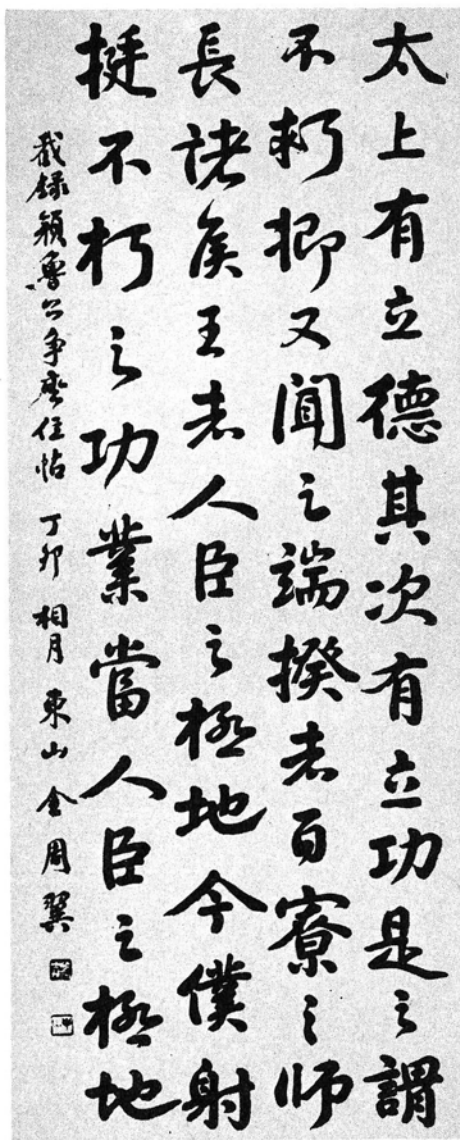 太上有立德其次有立功是之謂
不朽抑又聞之端揆者百寮之師
長諸侯王者人臣之極地今僕射
挺不朽之功業當人臣之極地
截錄顏魯公爭座位帖 丁卯 相月 東山 金周翼